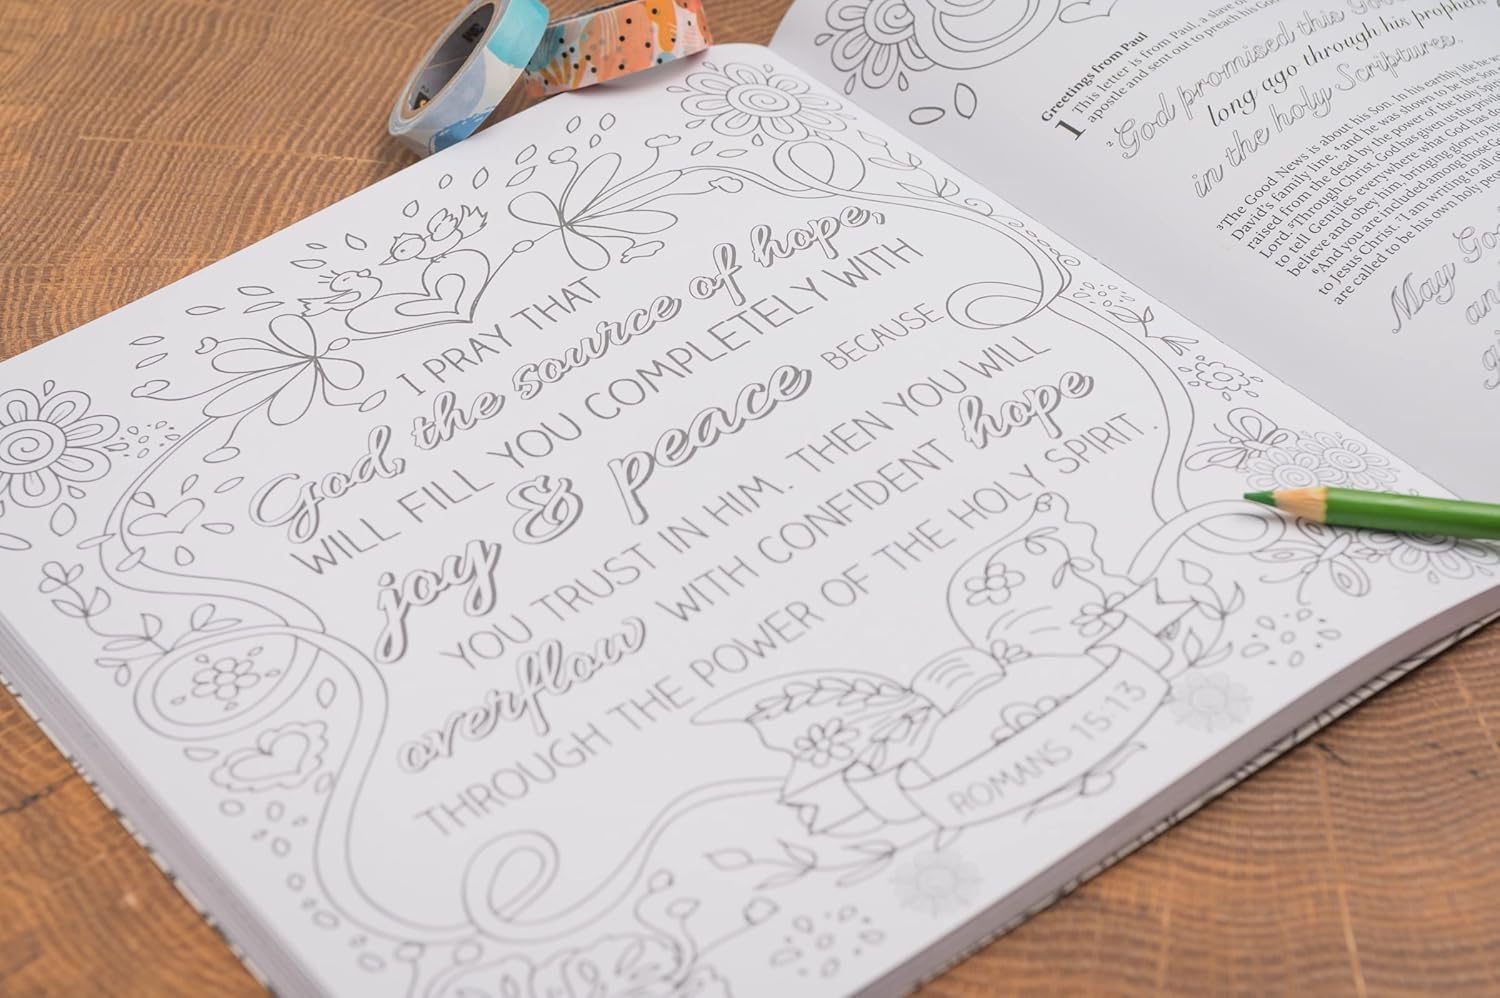 I PRAY THAT
God, the source of hope,
WILL FILL YOU COMPLETELY WITH
joy & peace BECAUSE
YOU TRUST IN HIM. THEN YOU WILL
overflow WITH CONFIDENT hope
THROUGH THE POWER OF THE HOLY SPIRIT.
ROMANS 15:13
Greetings from Paul
1 This letter is from Paul, a slave of
apostle and sent out to preach his Good
2 God promised this Good
long ago through his prophets
in the holy Scriptures.
3 The Good News is about his Son. In his earthly life he
David's family line, 4 and he was shown to be the Son
raised from the dead by the power of the Holy Spirit
Lord. 5 Through Christ, God has given us the privilege
to tell Gentiles everywhere what God has done
believe and obey him, bringing glory to his
6 And you are included among those Gentiles
to Jesus Christ. 7 I am writing to all of
are called to be his own holy people
May God